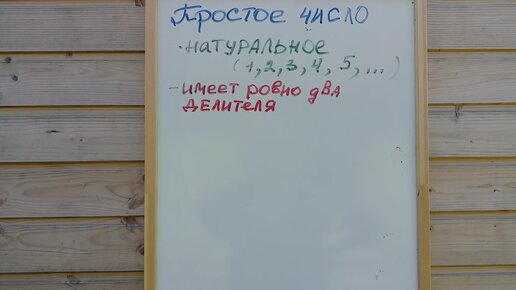 Простое число
· натуральное
(1, 2, 3, 4, 5, ...)
- имеет ровно два
делителя